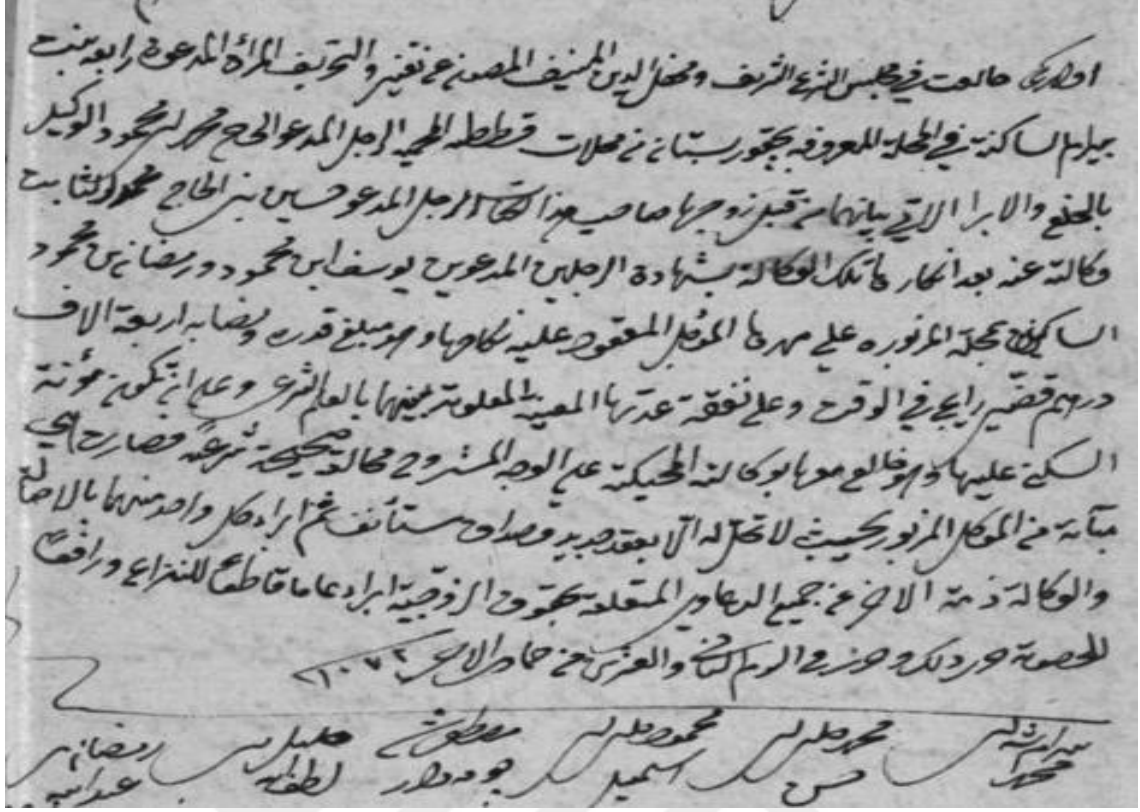 اولدركه خالعت في مجلس الشرع الشريف ومحفل الدين المنيف المصون عن التغيير والتحريف المرأة المدعوة رابعه بنت
بيرام الساكنة في المحلة المعروفه من محلات قسطنطنيه المحميه الرجل المدعو الحاج محمد بن محمود الوكيل
بالخلع والابرا الاتي بيانهما من قبل زوجها صاحب هذا الكتاب الرجل المدعو حسين بن الحاج محمود الثابت
وكالته عنه بعد انكارها تلك الوكالة بشهادة الرجلين المدعوين يوسف ابن محمود ورمضان بن محمود
الساكنين بمحلة المزبوره على مهرها المؤجل المعقود عليه نكاحها وهو مبلغ قدره ونصابه اربعة الاف
درهم فضي رايج في الوقت وعلى نفقة عدتها المعينة المعلومة بينهما بالعلم الشرعي وعلى ان تكون مؤنة
السكنى عليها وهو خالع معها بوكالته المحكية على الوجه المشروح مخالعة صحيحة شرعية فصارت هي
مبانة من الموكل المزبور بحيث لا تحل له الا بعقد جديد وصداق مستأنف ثم ابراء كل واحد منهما بالاصالة
والوكالة ذمة الاخر عن جميع الدعاوى المتعلقة بحقوق الزوجية ابراء عاما قاطعا للنزاع ورافعا
للخصومة جرى ذلك وحرر في اليوم والعشرين من جمادى الاخر ١٠٧٢
محمد محمد چلبي بن حسن محمود چلبي بن اسمعيل مصطفى خليل بن لطف الله رمضان بن عبد الله